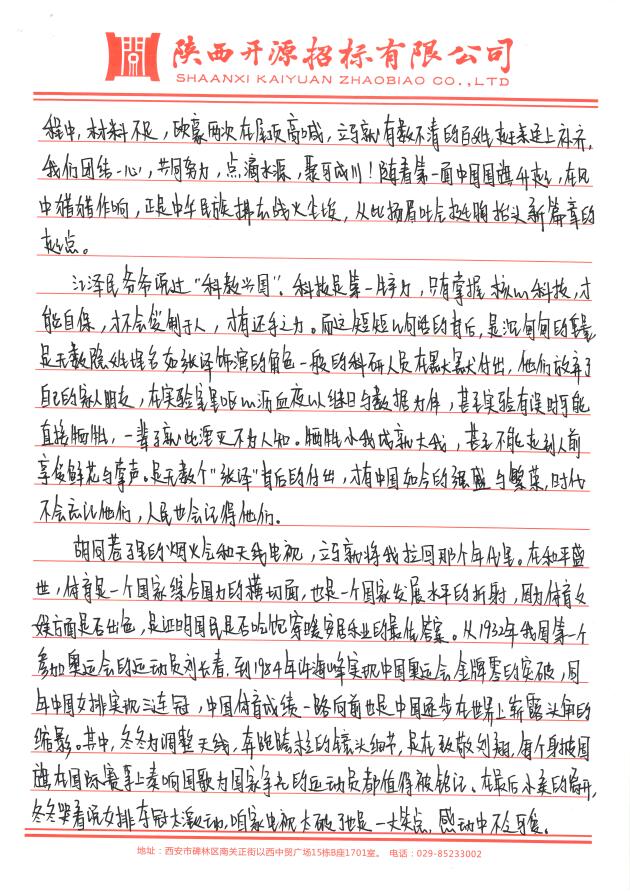 陕西开源招标有限公司
SHAANXI KAIYUAN ZHAOBIAO CO.,LTD
程中，材料不足，欧豪两次在屋顶高喊，立马就有数不清的百姓赶来送上补齐。
我们团结一心，共同努力，点滴水源，聚可成川！随着第一面中国国旗升起，在风
中猎猎作响，正是中华民族拂去战火尘埃，从此扬眉吐气挺胸抬头新篇章的
起点。
江泽民爷爷说过“科教兴国”。科技是第一生产力，只有掌握核心科技，才
能自保，才不会受制于人，才有还手之力。而这短短的背后，是沉甸甸的重量
是无数隐姓埋名如张译饰演的角色一般的科研人员在默默付出，他们放弃了
自己的家人朋友，在实验室里呕心沥血夜以继日与数据为伴，甚至实验有误时可能
直接牺牲，一辈子就此湮灭不为人知。牺牲小我成就大我，甚至不能走到人前
享受鲜花与掌声。是无数个“张译”背后的付出，才有中国如今的强盛与繁荣，时代
不会忘记他们，人民也会记得他们。
胡同巷子里的烟火气和天线电视，立马就将我拉回那个年代里。在和平盛
世，体育是一个国家综合国力的横切面，也是一个国家发展水平的折射，因为体育文
娱方面是否出色，是证明国民是否吃饱穿暖安居乐业的最佳答案。从1932年我国第一个
参加奥运会的运动员刘长春，到1984年许海峰实现中国奥运会金牌零的突破，同
年中国女排实现三连冠，中国体育成绩一路向前也是中国逐步在世界上崭露头角的
缩影。其中，冬冬为调整天线，奔跑跨栏的镜头细节，是在致敬刘翔，每个身披国
旗在国际赛事上奏响国歌为国家争光的运动员都值得被铭记。在最后小美的离开，
冬冬哭着说女排夺冠太激动，咱家电视太破了也是一大笑点，感动中不乏可爱。
地址：西安市碑林区南关正街以西中贸广场15栋B座1701室。 电话：029-85233002